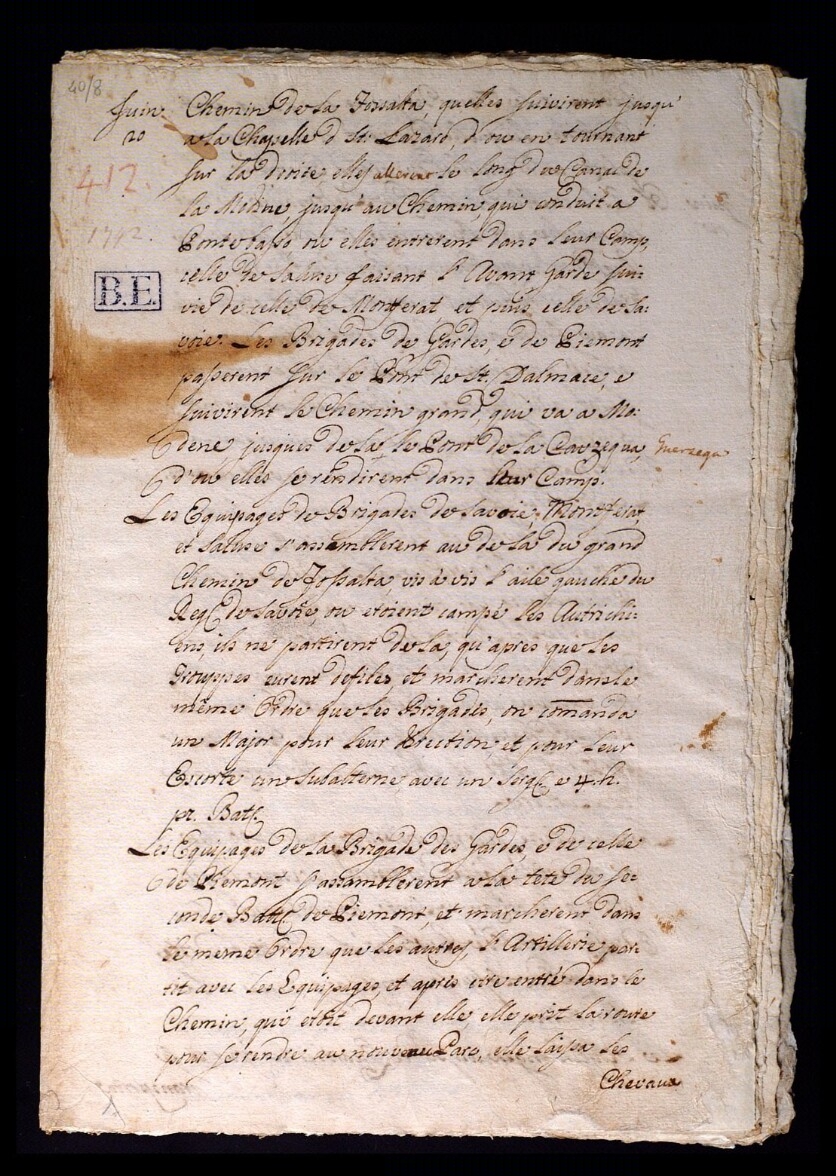 40/8
Juin 20
412.
1742.
B.E.
Chemin de la Fossalta, quelles suivirent jusqu'
a la Chapelle d St. Lazaro, d'ou en tournant
sur la droite elles allerent le long du Canal de
la Modine, jusqu' au Chemin qui conduit a
Ponte basso ou elles entrerent dans leur Camp,
celle de Saluse faisant l' Avant Garde sui-
vie de celle de Montferat et puis celle de Sa-
voie. Les Brigades de Gardes, e de Piemont
passerent sur le Pont de St. Dalmace, e
suivirent le Chemin grand, qui va a Mo-
dene jusques dela, le Pont de la Gavzequa, Guerzequa
d'ou elles se rendirent dans leur Camp.
Les Equipages de Brigades de Savoie, Montferat,
et Saluse s'assemblerent au de la du grand
Chemin de Fossalta, vis à vis l' aile gauche du
Regt. de Savoie, ou etoient campé les Autrichi-
ens, ils ne partirent dela, qu'apres que les
Trouppes eurent defilés, et marcherent dans le
même Ordre que les Brigades, on comanda
un Major pour leur direction, et pour leur
Escorte un subalterne avec un Sergt. e 4. h.
pr. Batt.
Les Equipages de la Brigade des Gardes, e de celle
de Piemont s'assamblerent a la tete du se-
conde Batt. de Piemont, et marcherent dans
le meme Ordre que les autres, l' Artillerie par-
tit avec les Equipages, et aprés etre entré dans le
Chemin, qui etoit devant elle elle prit la route
pour se rendre au nouveau Parc, elle laissa les
Chevaux